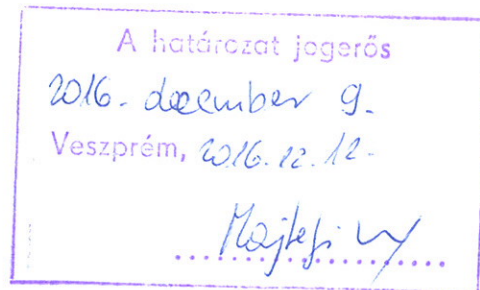 A határozat jogerős
2016. december 9.
Veszprém, 2016.12.12.